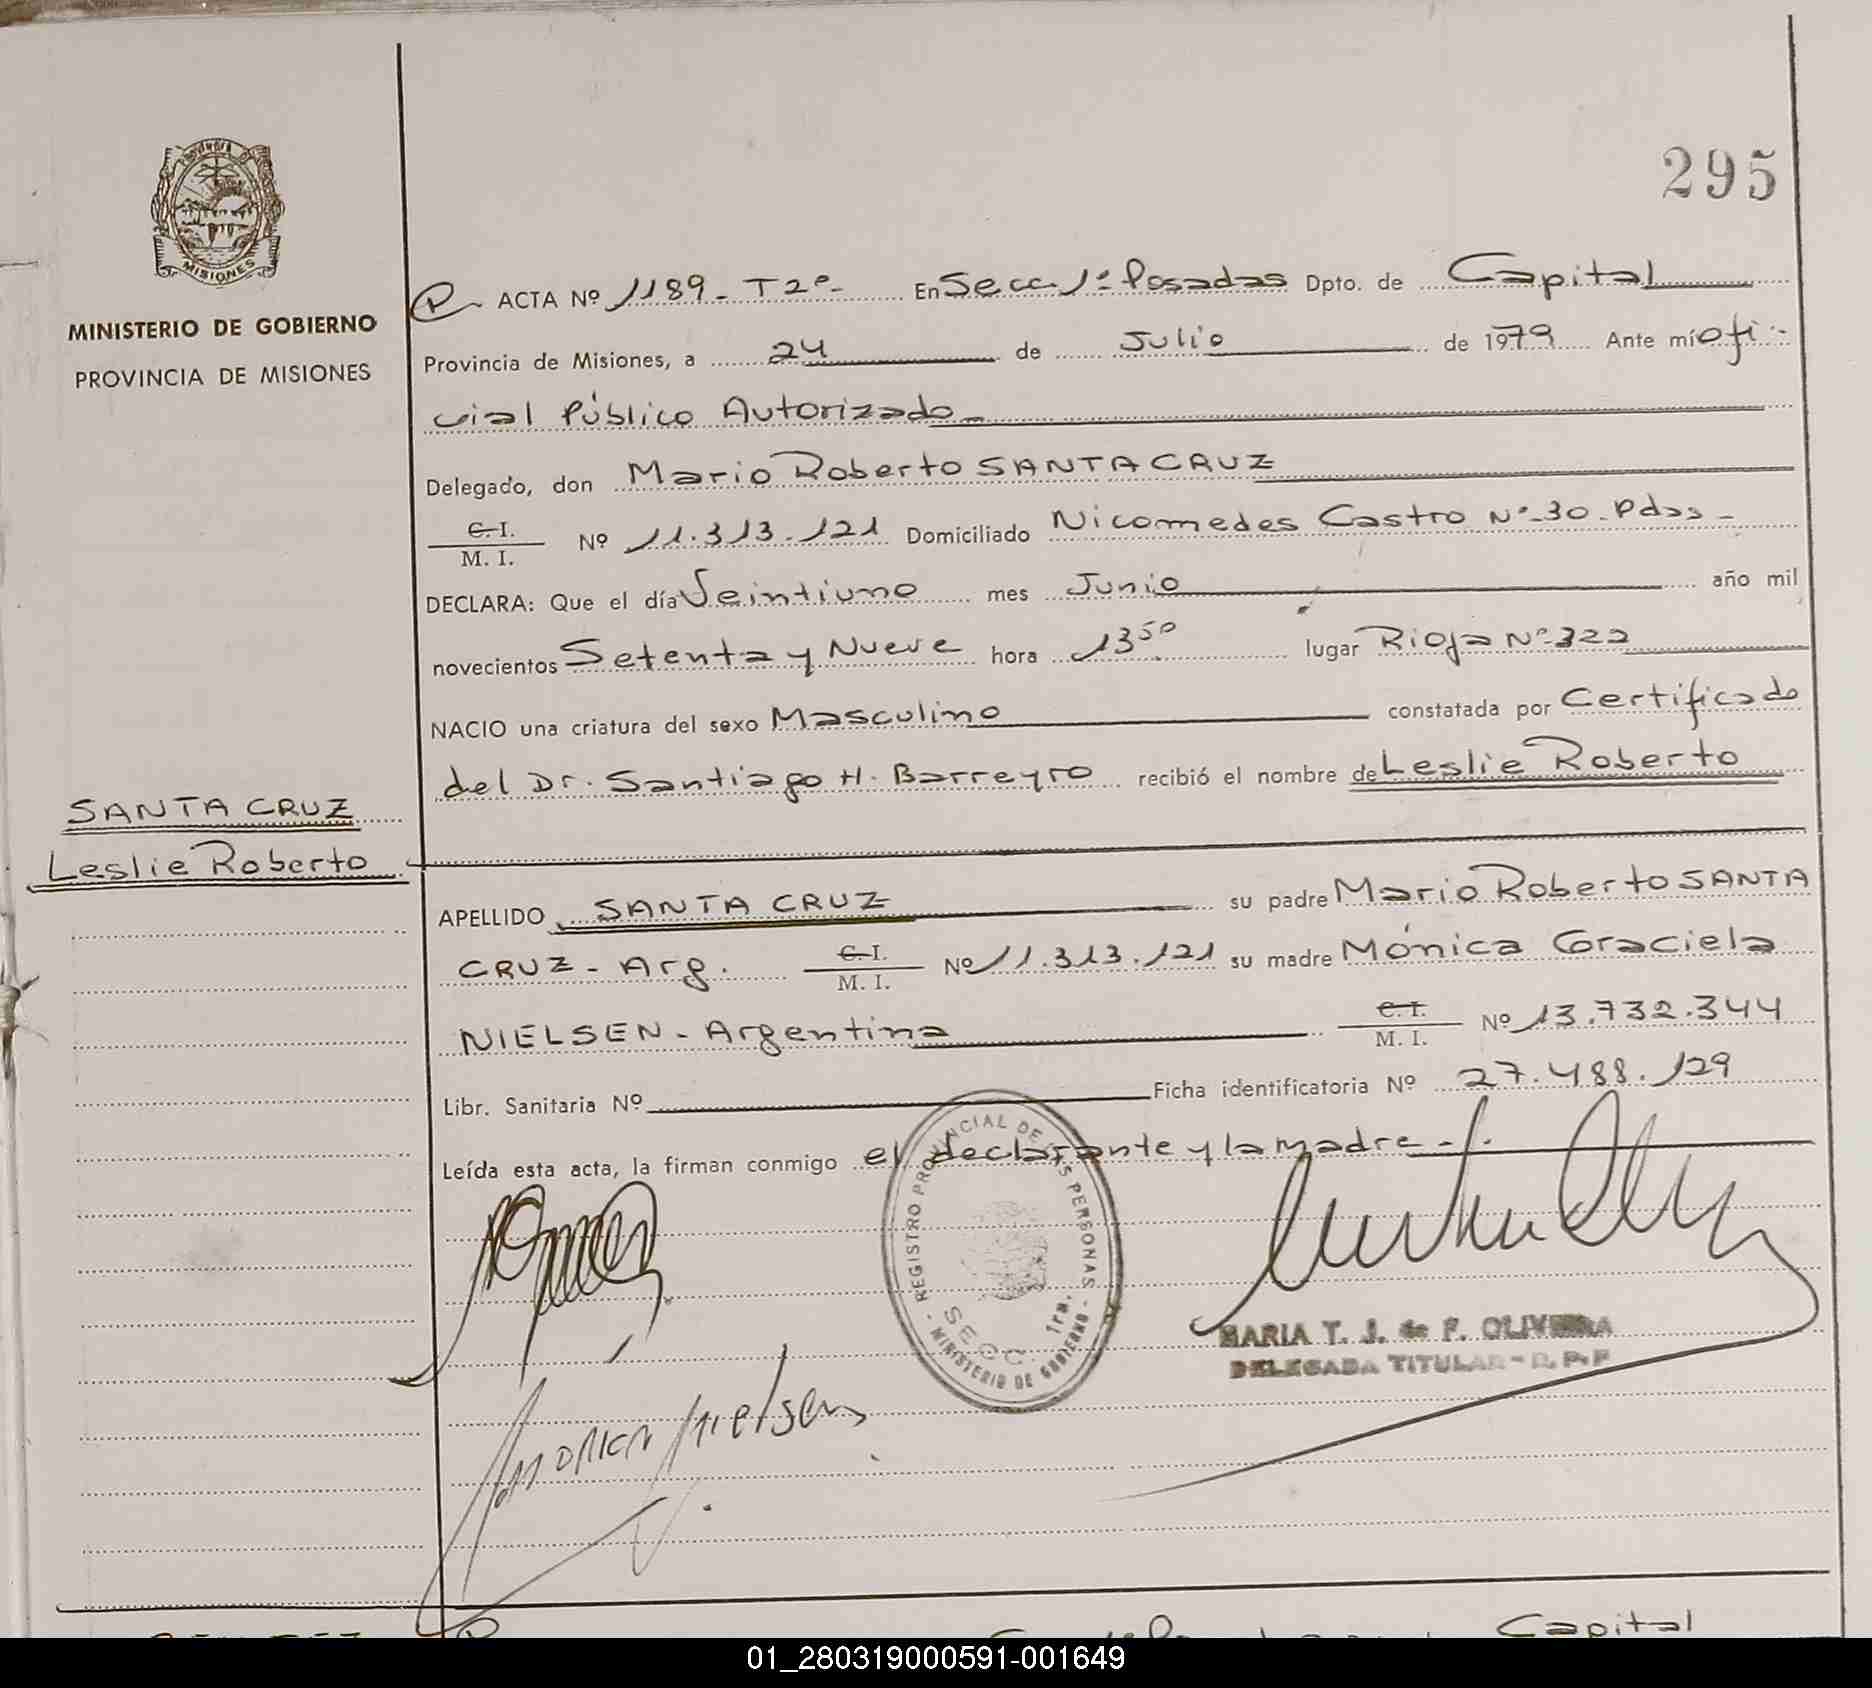 295
MISIONES
MINISTERIO DE GOBIERNO
PROVINCIA DE MISIONES
SANTA CRUZ
Leslie Roberto
ACTA Nº 1189 - T2º - En Secc 1ª Posadas Dpto. de Capital
Provincia de Misiones, a 24 de Julio de 1979 Ante mí ofi -
cial Público Autorizado -
Delegado, don Mario Roberto SANTA CRUZ
C. I.
M. I. Nº 11.313.121 Domiciliado Nicomedes Castro Nº 30 - Pdas -
DECLARA: Que el día Veintiuno mes Junio año mil
novecientos Setenta y Nueve hora 13 50 lugar Rioja Nº 322
NACIO una criatura del sexo Masculino constatada por Certificado
del Dr. Santiago H. Barreyro recibió el nombre de Leslie Roberto
APELLIDO SANTA CRUZ su padre Mario Roberto SANTA
CRUZ - Arg. C. I. M. I. Nº 11.313.121 su madre Mónica Graciela
NIELSEN - Argentina C. I. M. I. Nº 13.732.344
Libr. Sanitaria Nº Ficha identificatoria Nº 27.488.129
Leída esta acta, la firman conmigo el declarante y la madre -
REGISTRO PROVINCIAL DE LAS PERSONAS
SECC. 1ra.
- MINISTERIO DE GOBIERNO -
MARIA T. J. de F. OLIVEIRA
DELEGADA TITULAR - R. P. P
Monica Nielsen
Capital
01_280319000591-001649